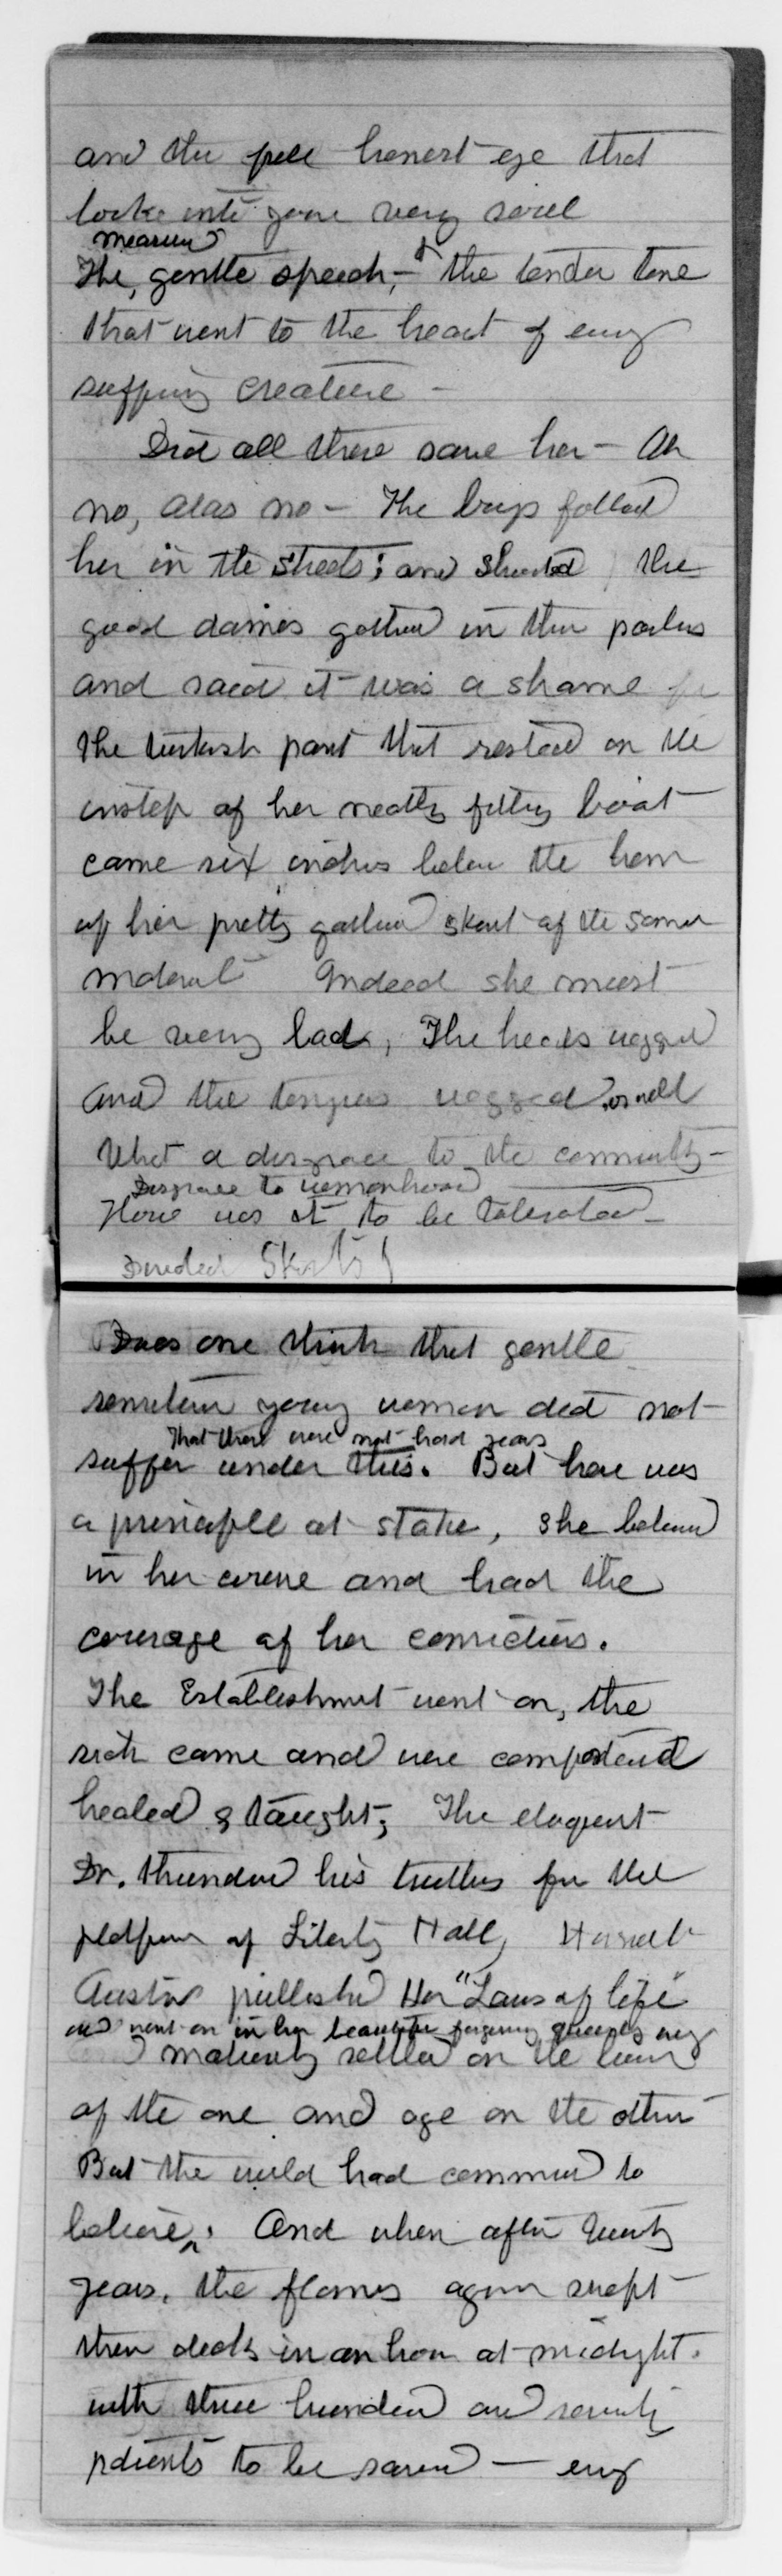 and the full honest eye that
looks into your very soul
measured
The, gentle speech, – & the tender tone
that went to the heart of every
suffering creature –
Did all these save her – Ah
no, alas no – The boys followed
her in the streets; and shouted, the
good dames gathered in their parlors
and said it was a shame for
the turkish pant that rested on the
instep of her neatly fitting boot
came six inches below the hem
of her pretty gathered skirt of the same
material Indeed she must
be very bad, The heads wagged
and the tongues wagged, as well
What a disgrace to the community –
Disgrace to womanhood
How was it to be tolerated –
Divided Skirts!
Does one think that gentle
sensitive young woman did not
That there were not hard years
suffer under this. But here was
a principle at stake, she believed
in her cause and had the
courage of her convictions.
The Establishment went on, the
sick came and were comforted
healed & taught; The eloquent
Dr. thundered his truths from the
platform of Liberty Hall, Harriet
Austin published Her "Laws of life"
and went on in her beautiful forgiving queenly way
maturity settled on the
of the one and age on the other
But the world had commenced to
believe. And when after twenty
years, the flames again swept
their decks in an hour at midnight.
with three hundred and seventy
patients to be saved – every